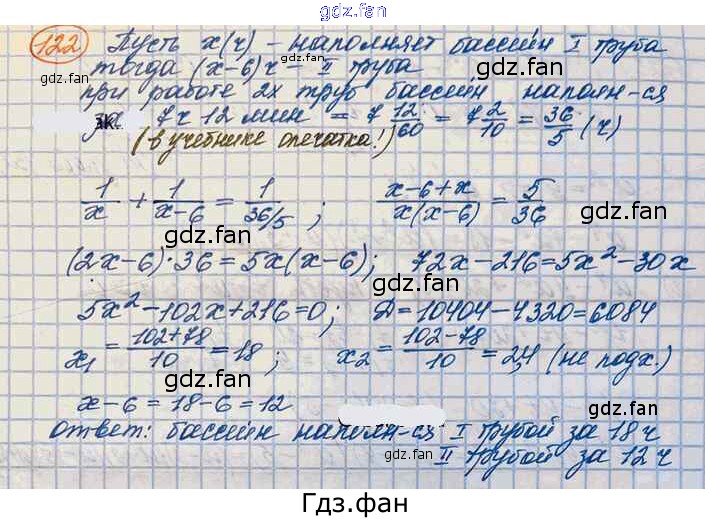 gdz.фан
122 Пусть x(ч) – наполняет бассейн I труба
тогда (x-6)ч – II труба
gdz.фан
при работе 2х труб бассейн наполн-ся
за 7ч 12 мин = 7 12/60 = 7 2/10 = 36/5 (ч)
(в учебнике опечатка!)
gdz.фан
1/x + 1/(x-6) = 1/(36/5); (x-6+x)/(x(x-6)) = 5/36
gdz.фан gdz.фан
(2x-6)·36=5x(x-6); 72x-216=5x²-30x
gdz.фан gdz.фан
5x²-102x+216=0; Д=10404-4320=6084
x₁ = (102+78)/10 = 18; x₂ = (102-78)/10 = 2,4 (не подх.)
gdz.фан gdz.фан
x-6=18-6=12
ответ: бассейн наполн-ся I трубой за 18ч
gdz.фан
II трубой за 12ч
Гдз.фан